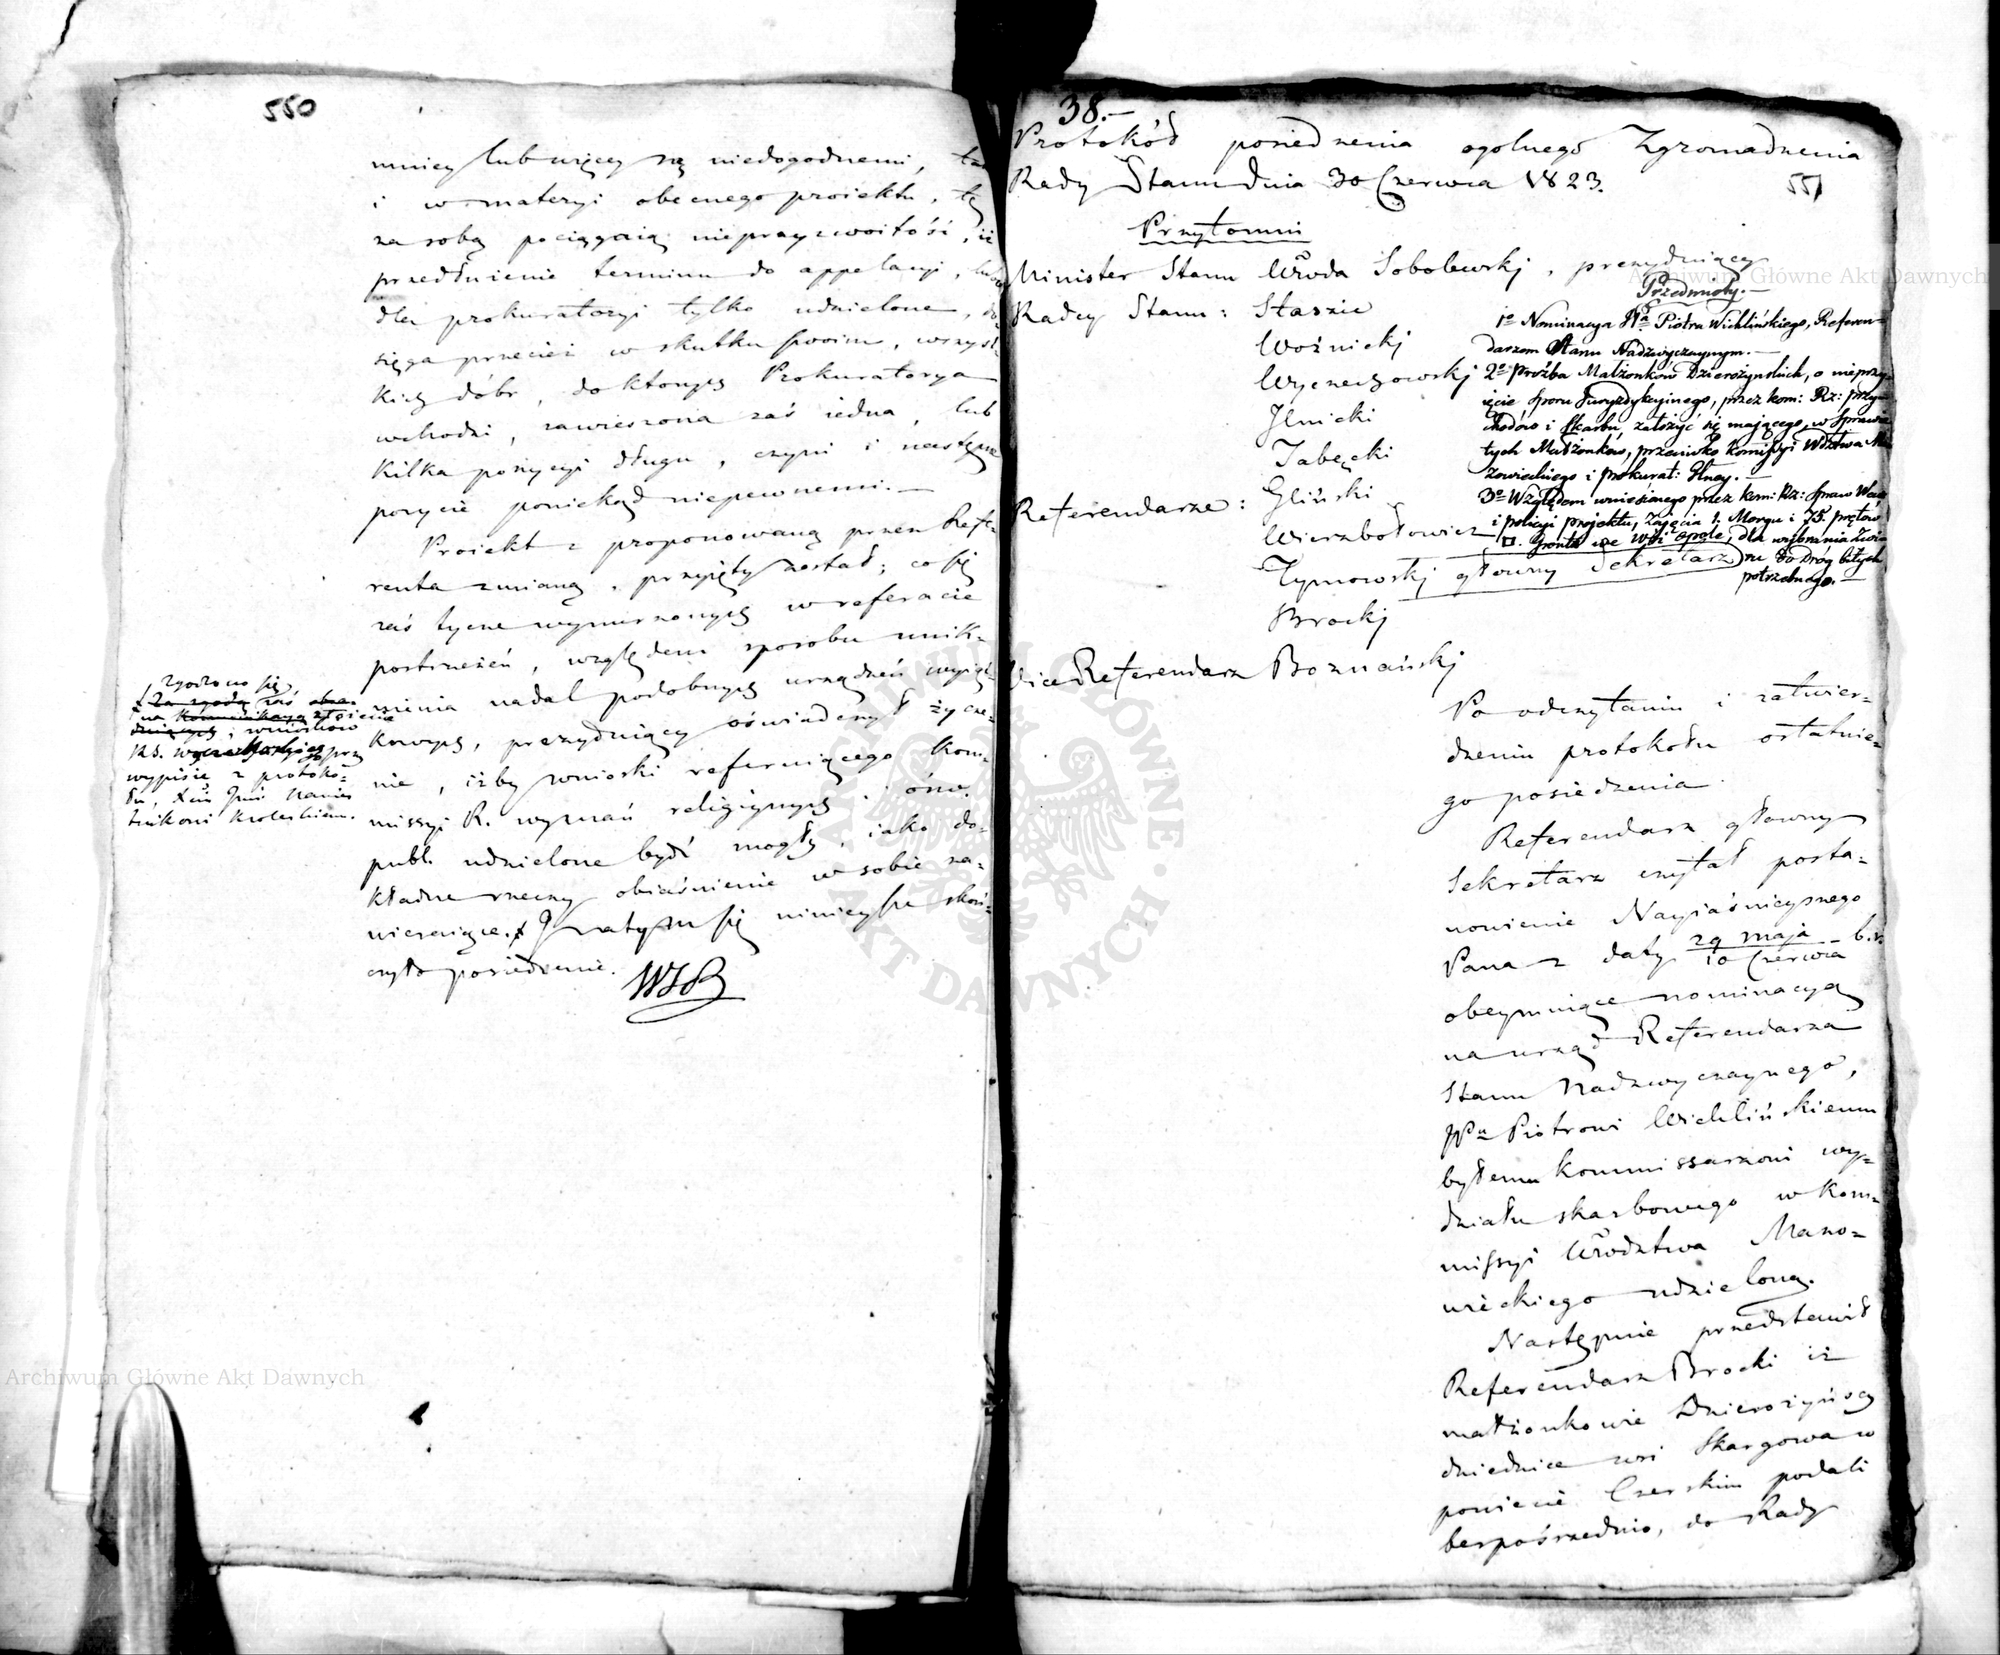 550
mniey lub więcy są niedogodnemi, tak
i w materyi obecnego proiektu, tę
za sobą pociągaią nieprzyzwoitość, iż
przedłużenie terminu do appelacyi, lubo
dla prokuratoryi tylko udzielone, do
sięga przecież w skutku swoim, wszyst-
kich dóbr, do ktorych Prokuratorya
wchodzi, zawieszona zaś iedna lub
kilka pozycyi długu, czyni i następne
pozycie poniekąd niepewnemi.—
Proiekt z proponowaną przez Refe-
renta zmianą, przyięty został; co się
zaś tycze wymienionych w referacie
postrzeżeń, względem sposobu unik-
nienia nadal podobnych urządzeń wyiąt-
kowych, prezyduiący oświadczył życze-
nie, iżby wnioski referuiącego Kom-
missyi R. wyznań religiynych i ośw.
publ. udzielone bydź mogły, iako do-
kładne rzeczy obiaśnienie w sobie za-
wieraiące. Na tym się ninieysze skoń-
czyło posiedzenie.
WSB
zgodzono się
Za zgodą zaś
na kommunikacyą złożenia
wniosków
R. S. w
wypisie z protoko-
łu, Xciu Jmci Namies
tnikowi Krolewskiemu.
38.—
Protokół posiedzenia ogolnego Zgromadzenia
Rady Stanu dnia 30 Czerwca 1823.
551
Przytomni
Minister Stanu Wwoda Sobolewskj, prezyduiący
Radcy Stanu: Staszic
Woźnickj
Wyczechowskj
Ilnicki
Tabęcki
Referendarze: Gliński
Wierzbołowicz
Tymowskj główny Sekretarz
Brockj
Vice Referendarz Boznańskj
Przedmioty.—
1º Nominacya JPa Piotra Wichlińskiego, Referen-
darzem Stanu Nadzwyczaynym.—
2º Proźba Małżonków Dzierożyńskich, o nieprzy-
ięcie sporu Jurysdykcyjnego, przez kom: Rz: Przy-
chodów i Skarbu, założyć się mającego, w sprawie
tych Małżonków, przeciwko Komissyi Wdztwa Ma
zowieckiego i prokurat: Glney.—
3º Względem wniesionego przez kom: Rz: Spraw Wew
i policyi projektu, zajęcia 1. Morgu i 75. prętów
□. gruntu we wsi Opole, dla wybrania żwi-
ru do dróg bitych
potrzebnego.—
Po odczytaniu i zatwier-
dzeniu protokołu ostatnie-
go posiedzenia
Referendarz główny
Sekretarz czytał posta-
nowienie Nayiaśnieyszego
Pana z daty 29 maja / 10 Czerwca b.r.
obeymuiące nominacyą
na urząd Referendarza
Stanu Nadzwyczaynego,
JPu Piotrowi Wichlińskiemu
byłemu kommissarzowi wy-
działu skarbowego w Kom-
missyi Wwodztwa Mazo-
wieckiego udzieloną.
Następnie przedstawił
Referendarz Brocki iż
małżonkowie Dzierożyńscy
dziedzice wsi Skurgowa w
powiecie Czerskim podali
bezpośrednio, do Rady
Archiwum Główne Akt Dawnych
Archiwum Główne Akt Dawnych
ARCHIWUM GŁÓWNE AKT DAWNYCH